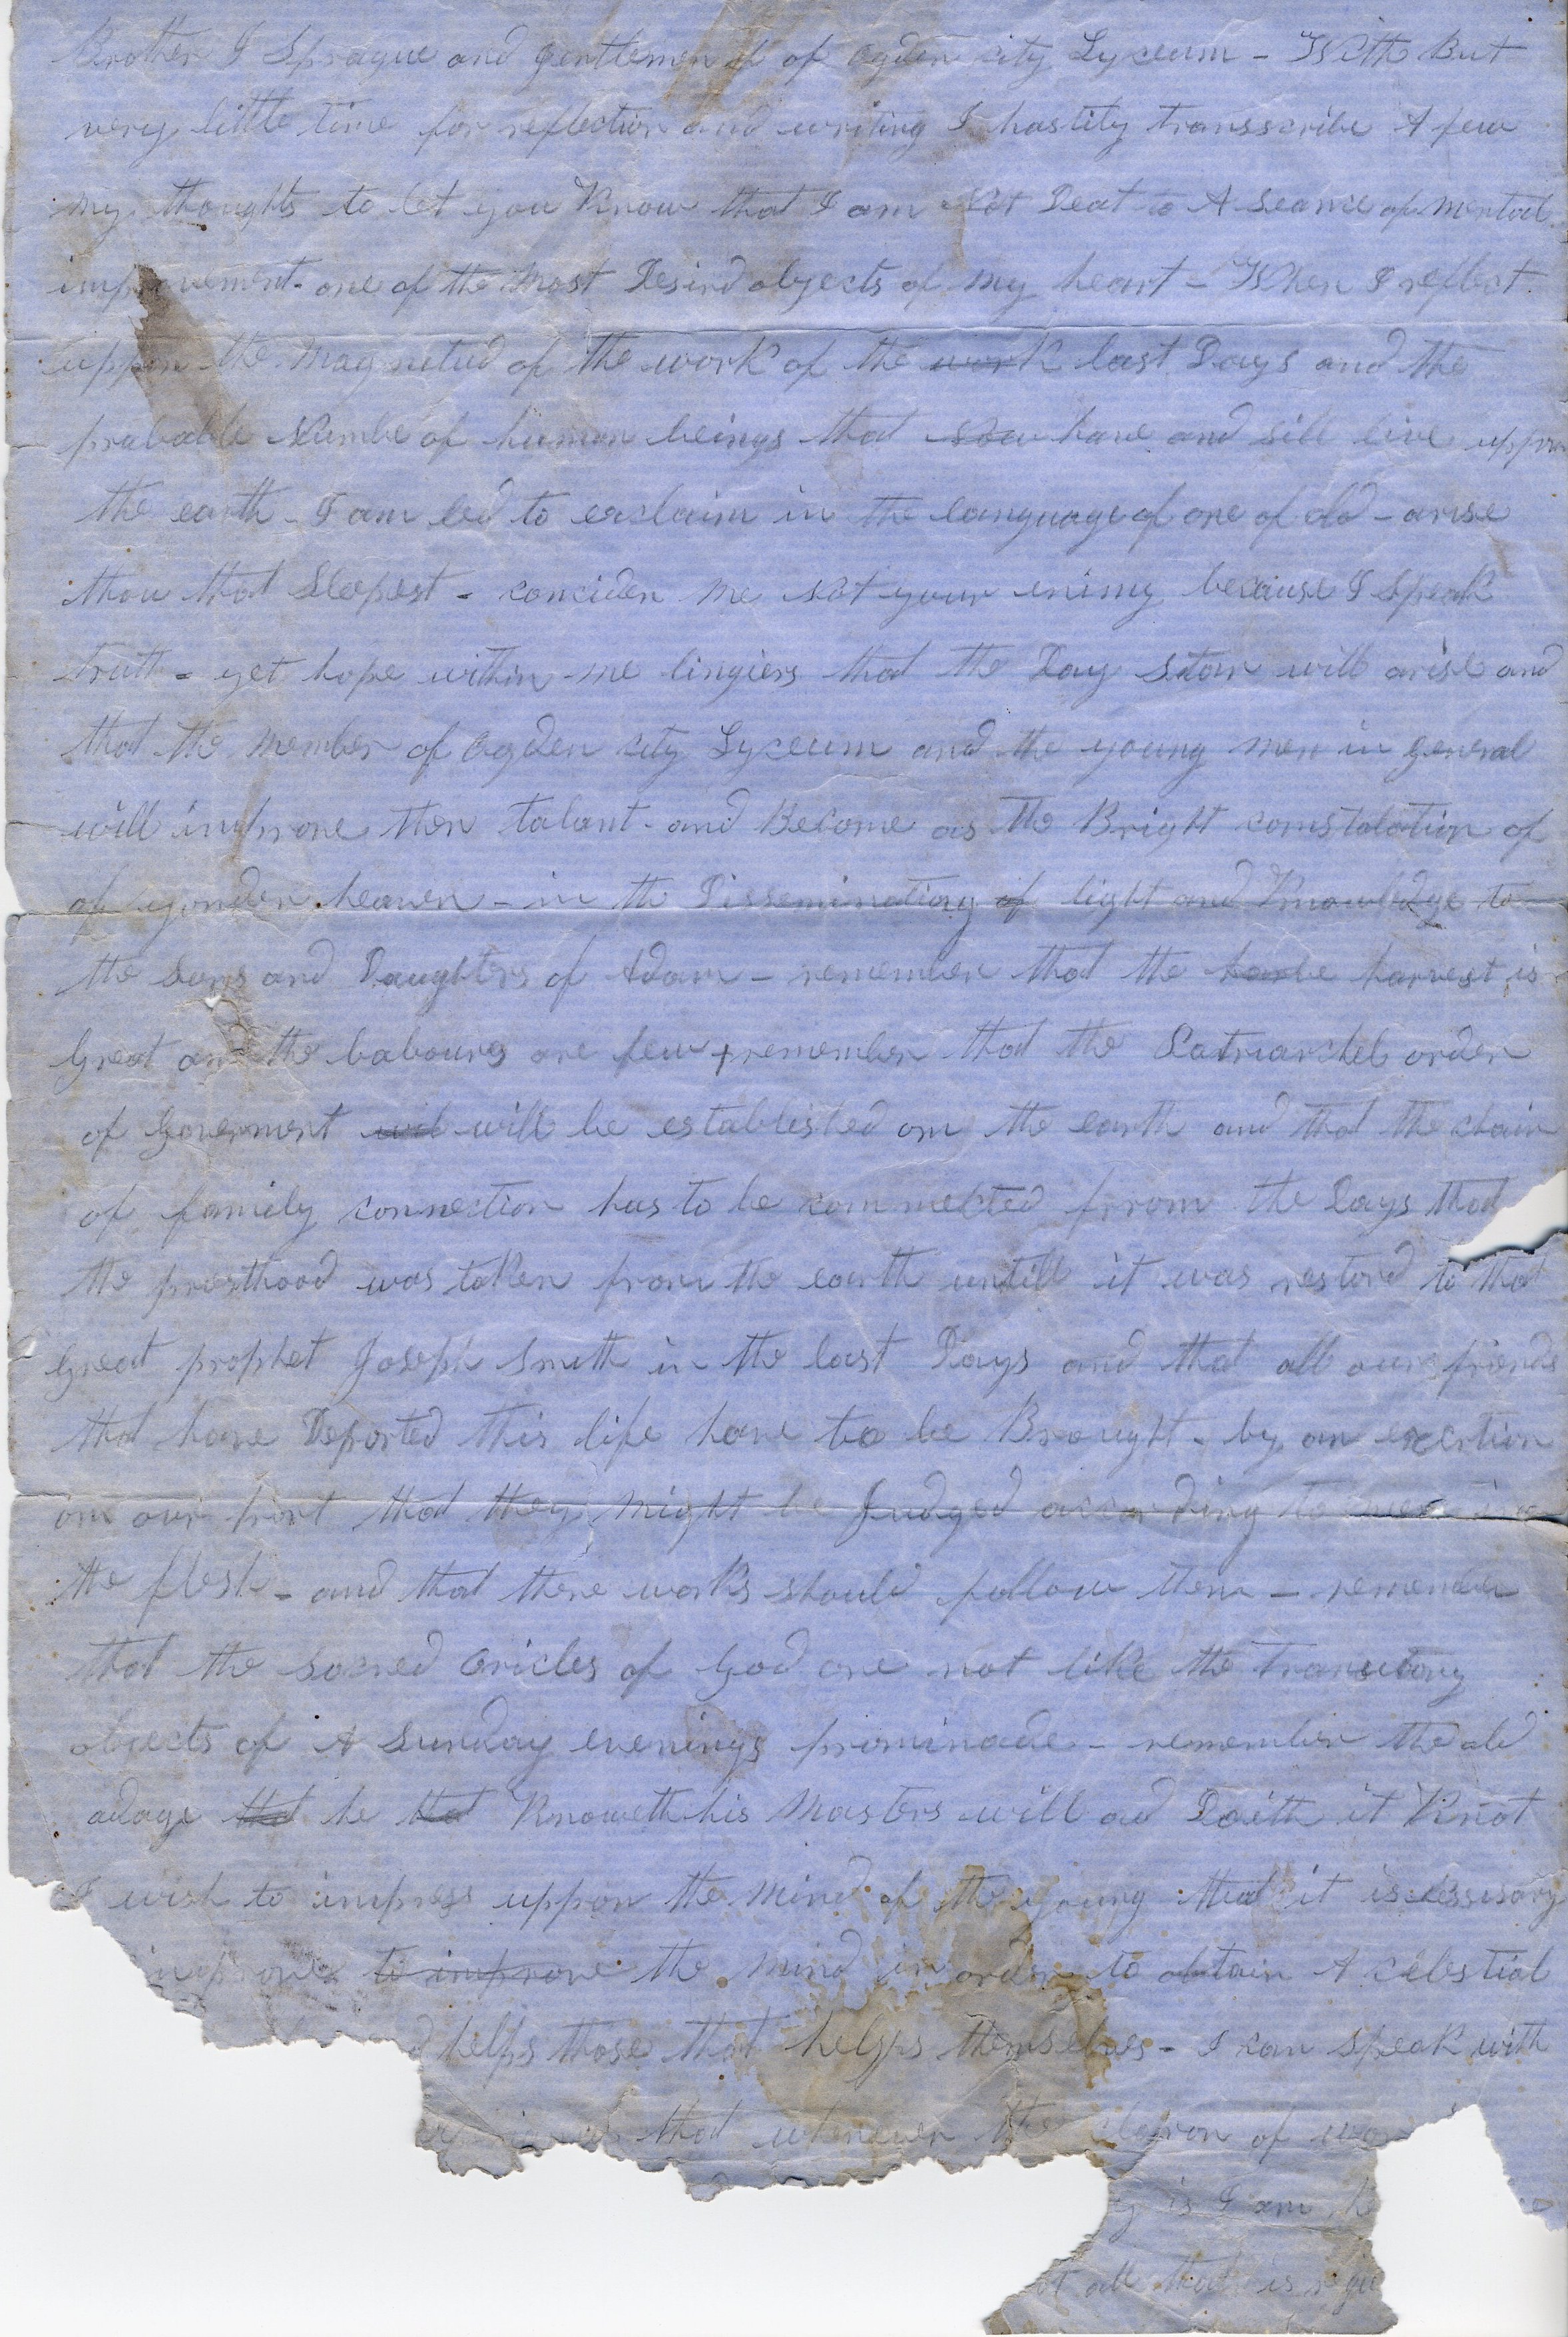 Brother I Sprague and gentlemen of of ogden city Lyceum - With But
very little time for reflection and writing I hastily transscribe A few
my thoughts to let you Know that I am Not Deat to A Seance of mental
improvement - one of the Most Desird objects of my heart - When I reflect
uppon the magnitud of the work of the work last Days and the
probable Numbe of human beings that have and sill live uppon
the earth - I am led to exclaim in the language of one of old - arise
thou that Sleepest - conciden me Not your enimy because I Speak
truth - yet hope within me lingiers that the Day Star will arise and
that the member of ogden city Lyceum and the young men in general
will improve then talant - and Become as the Bright comstalation of
of yonder heaven - in the Disseminationg of light and Knowledge to
the Sons and Daughters of Adam - remember that the harve harvest is
Great and the labourers are few + remember that the Patriarchel order
of Goverment wil will be established om the earth and that the chain
of family connection has to be commected frrom the Days that
the preasthood was taken from the earth untill it was restord to that
Great prophet Joseph Smith in the last Days and that all our friends
that have Deported this life have to be Brought - by an exertion
om our part that they might be Judged according to men in
the flesh - and that there works should follow them - remember
that the sacred oricles of God are not like the transitory
objects of A Sunday evenings prominade - remember the old
adage that he that Knoweth his Masters will ad Doeith it Knot
I wish to impress uppon the mind of the young that it is nessisary
improve to improve the mind in order to obtain A celestial
helps those that helps themselves - I can speak with
that whenever the clarion of
is I am
all that is